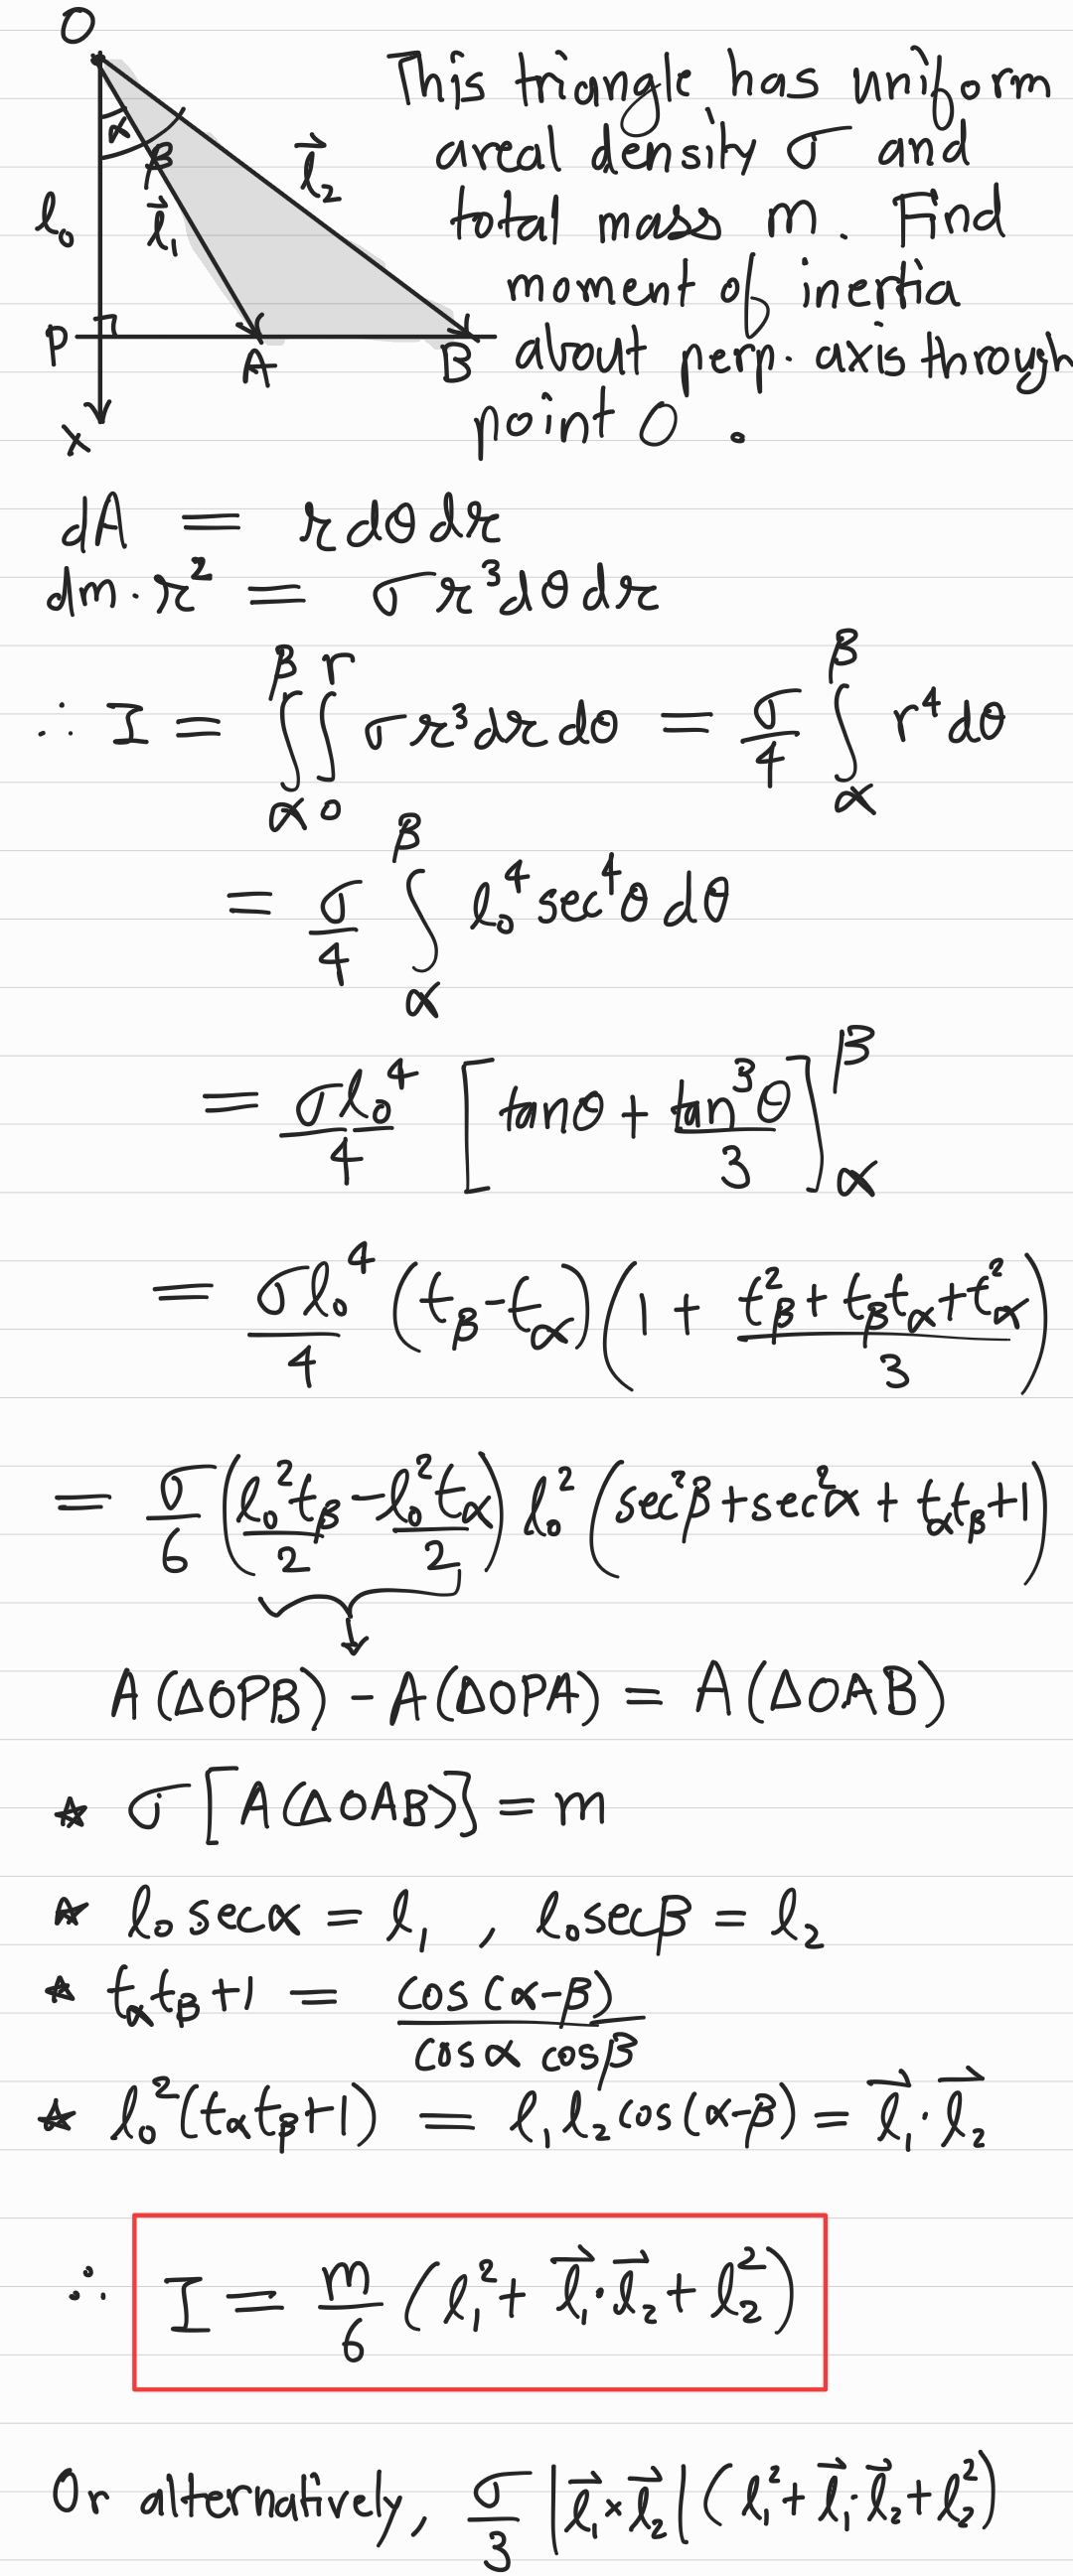 O
This triangle has uniform
α
β
areal density σ and
l⃗₂
l₀
l⃗₁
total mass m. Find
moment of inertia
P
A
B
about perp. axis through
x
point O.
dA = r dθ dr
dm · r² = σr³dθdr
∴ I = ∫_α^β ∫_0^r σr³drdθ = σ/4 ∫_α^β r⁴dθ
= σ/4 ∫_α^β l₀⁴ sec⁴θ dθ
= σl₀⁴/4 [tanθ + tan³θ/3]_α^β
= σl₀⁴/4 (t_β - t_α)(1 + (t_β² + t_βt_α + t_α²)/3)
= σ/6 (l₀²t_β/2 - l₀²t_α/2) l₀² (sec²β + sec²α + t_αt_β + 1)
A(ΔOPB) - A(ΔOPA) = A(ΔOAB)
☆ σ[A(ΔOAB)] = m
☆ l₀secα = l₁ , l₀secβ = l₂
☆ t_αt_β+1 = cos(α-β)/(cosα cosβ)
☆ l₀²(t_αt_β+1) = l₁l₂cos(α-β) = l⃗₁·l⃗₂
∴ I = m/6 (l₁² + l⃗₁·l⃗₂ + l₂²)
Or alternatively, σ/3 |l⃗₁×l⃗₂| (l₁² + l⃗₁·l⃗₂ + l₂²)